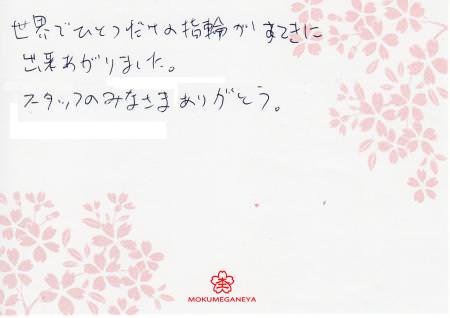 世界でひとつだけの指輪がすてきに
出来あがりました。
スタッフのみなさまありがとう。
MOKUMEGANEYA